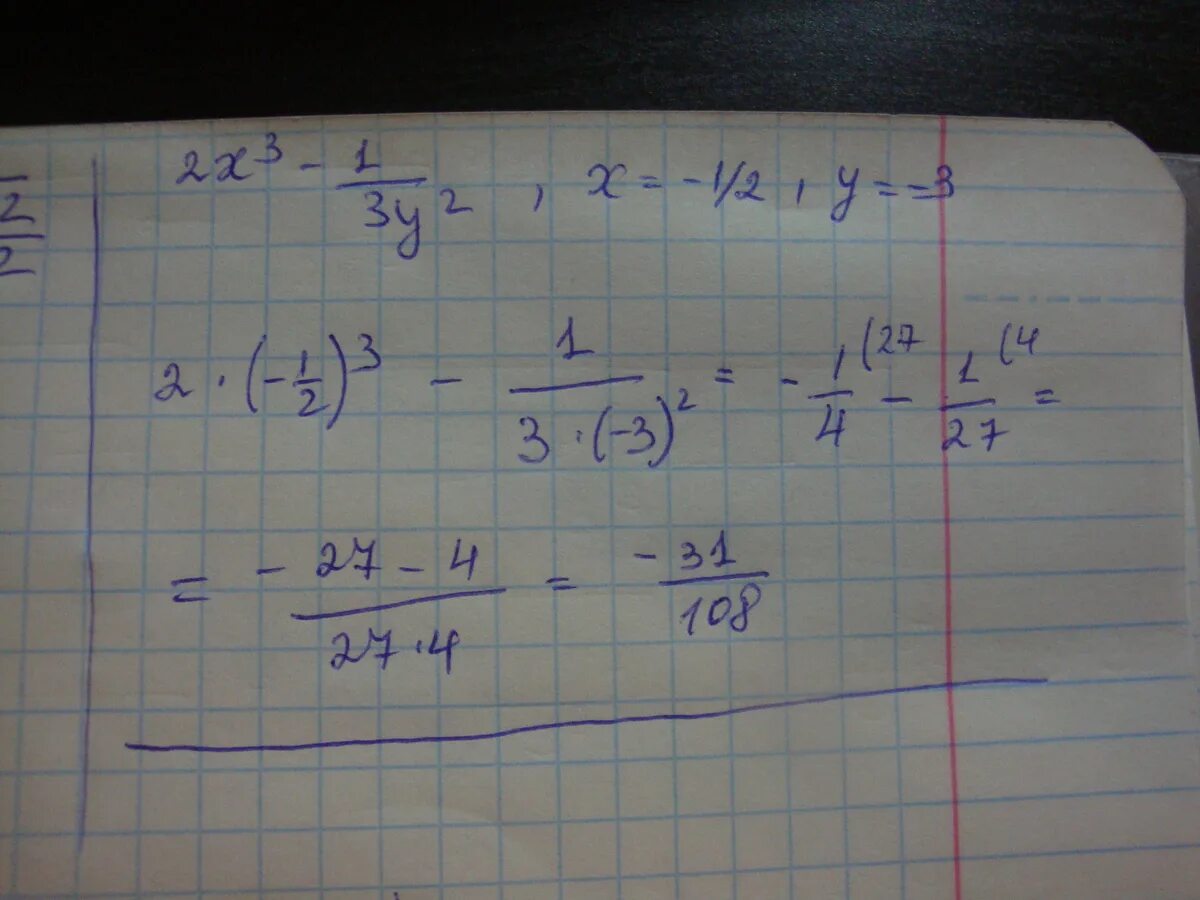 2
2
2x³ - 1/3y², x = -1/2, y = -3
2 · (-1/2)³ - 1/(3 · (-3)²) = - 1/4 (27 - 1/27 (4 =
= (- 27 - 4)/(27 · 4) = - 31/108